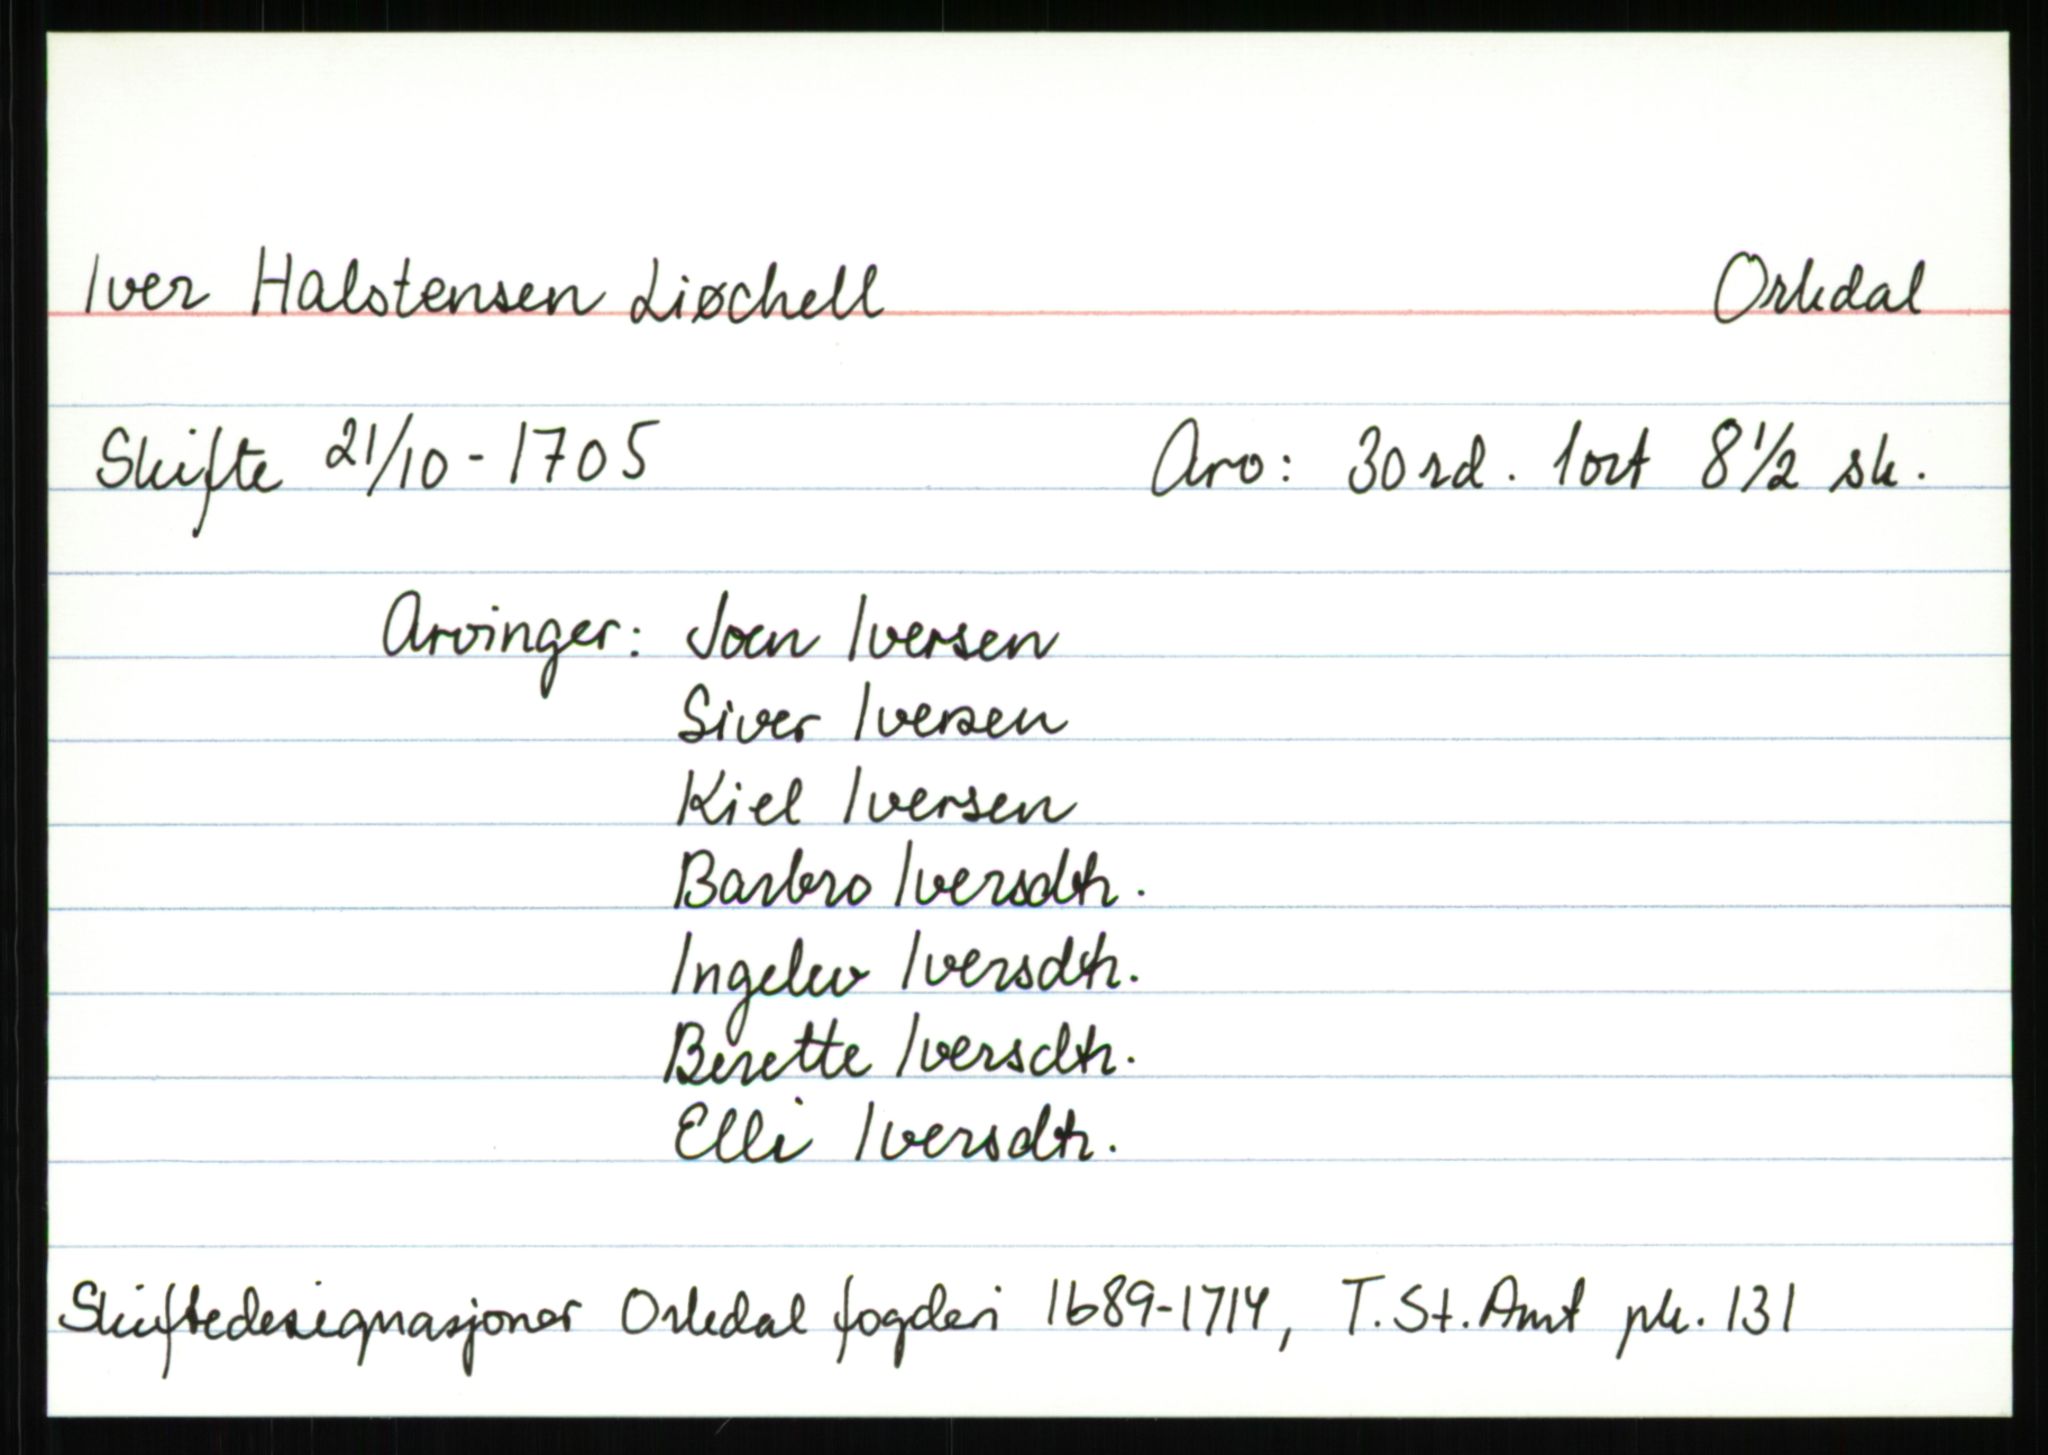 Iver Halstensen Liøchell Orkdal
Skifte 21/10 - 1705 Arv: 30 rd. 1 ort 8 1/2 sk.
Arvinger: Joen Iversen
Siver Iversen
Kiel Iversen
Barbro Iversdtr.
Ingelev Iversdtr.
Berette Iversdtr.
Elli Iversdtr.
Skiftedesignasjoner Orkdal fogderi 1689-1714, T. St. Amt pk. 131